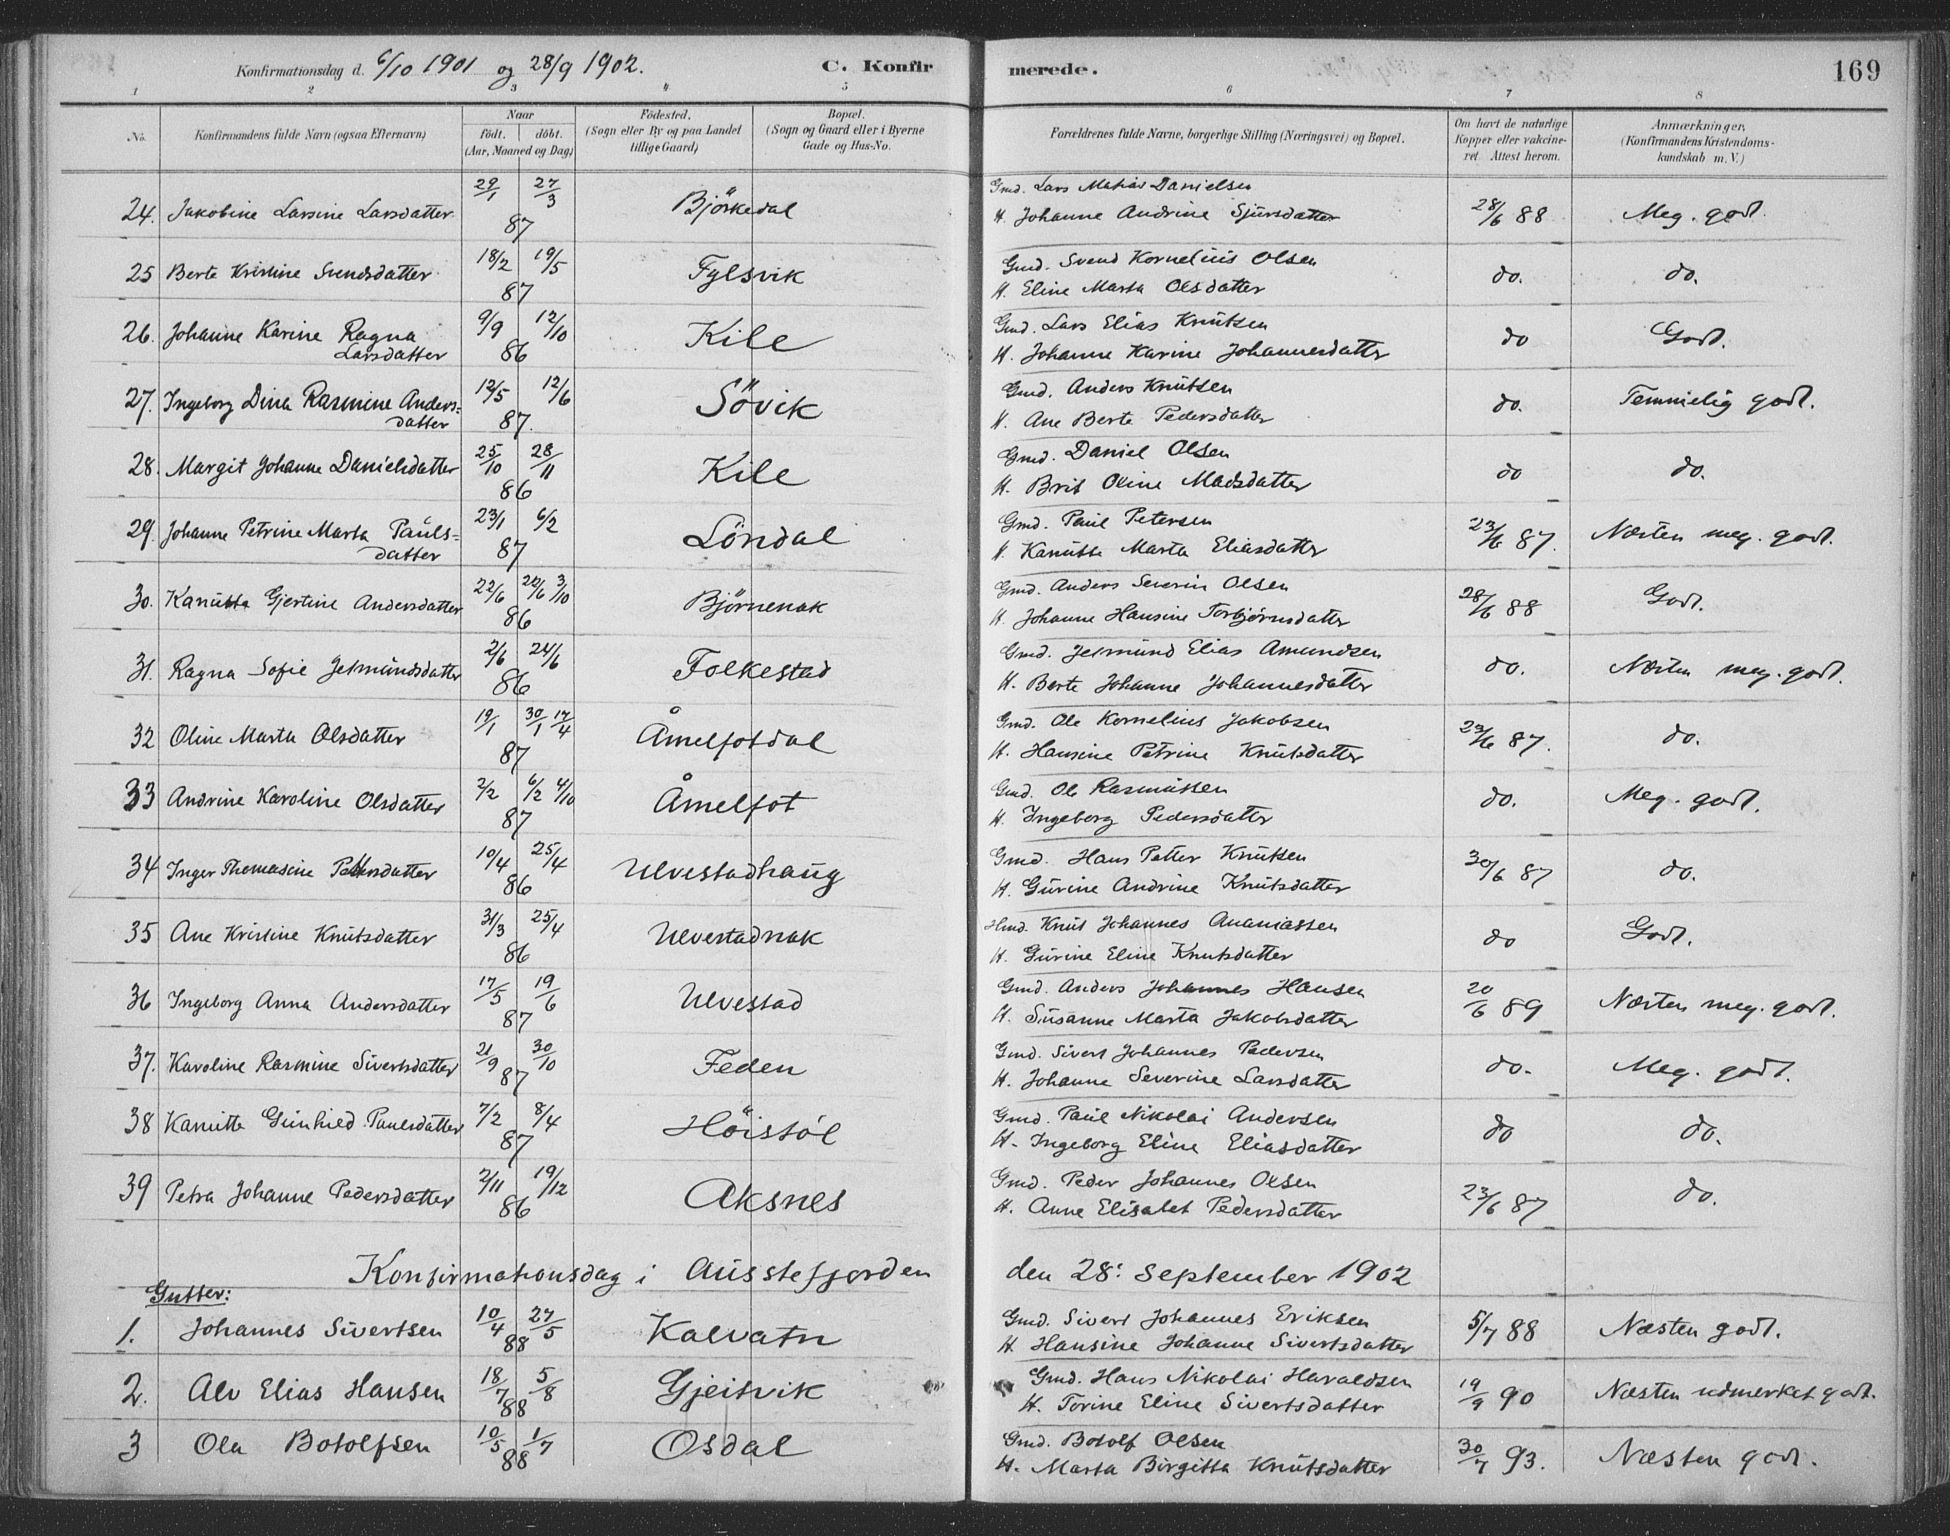 Konfirmationsdag d. 6/10 1901 og 28/9 1902. C. Konfirmerede. 169
1 2 3 4 5 6 7 8
No. Konfirmandens fulde Navn (ogsaa Efternavn) Naar födt. döbt. (Aar, Maaned og Dag) Födested. (Sogn eller By og paa Landet tillige Gaard) Bopæl. (Sogn og Gaard eller i Byerne Gade og Hus-No. Forældrenes fulde Navne, borgerlige Stilling (Næringsvei) og Bopæl. Om havt de naturlige Kopper eller vakcineret. Attest herom. Anmærkninger. (Konfirmandens Kristendomskundskab m. V.)
24. Jakobine Larsine Larsdatter 29/1 27/3 87 Björkedal Gmd. Lars Matias Danielsen
H. Johanne Andrine Sjursdatter 28/6 88 Meg. godt.
25 Berte Kristine Svendsdatter 18/2 19/5 87 Fylsvik Gmd. Svend Kornelius Olsen
H. Eline Marta Olsdatter do. do.
26. Johanne Karine Ragna Larsdatter 9/9 12/10 86 Kile Gmd. Lars Elias Knutsen
H. Johanne Karine Johannesdatter do Godt.
27. Ingeborg Dina Rasmine Anders-datter 12/5 12/6 87. Sövik Gmd. Anders Knutsen
H. Ane Berte Pedersdatter do. Temmelig godt.
28. Margit Johanne Danielsdatter 25/10 28/11 86 Kile Gmd. Daniel Olsen
H. Brit Oline Madsdatter do do.
29. Johanne Petrine Marta Pauls-datter 23/1 6/2 87 Löndal Gmd. Paul Petersen
H. Kanutte Marta Eliasdatter 23/6 87. Næsten meg. godt.
30. Kanutta Gjertine Andersdatter 22/6 22/6 3/10 86 Björnenak Gmd. Anders Severin Olsen
H. Johanne Hansine Torbjørnsdatter 28/6 88 Godt.
31. Ragna Sofie Jetmundsdatter 2/6 24/6 86 Folkestad Gmd. Jetmund Elias Amundsen
H. Berte Johanne Johannesdatter do. Næsten meg. godt.
32 Oline Marta Olsdatter 19/1 30/1 17/4 87 Åmelfotdal Gmd. Ole Kornelius Jakobsen
H. Hansine Petrine Knutsdatter 23/6 87. do.
33 Andrine Karoline Olsdatter 2/2 6/2 4/10 87 Åmelfot Gmd. Ole Rasmussen
H. Ingeborg Pedersdatter do. Meg. godt.
34 Inger Thomasine Pettersdatter 10/4 25/4 86 Ulvestadhaug Gmd. Hans Petter Knutsen
H. Gurine Andrine Knutsdatter 30/6 87 do.
35 Ane Kristine Knutsdatter 31/3 25/4 86 Ulvestadnak Hmd. Knut Johannes Ananiassen
H. Gurine Eline Knutsdatter do Godt.
36 Ingeborg Anna Andersdatter 17/5 19/6 87 Ulvestad Gmd. Anders Johannes Hansen
H. Susanne Marta Jakobsdatter 20/6 89 Næsten meg. godt.
37. Karoline Rasmine Sivertsdatter 21/9 30/10 87 Feden Gmd. Sivert Johannes Pedersen
H. Johanne Severine Larsdatter do. Meg. godt.
38 Kanutte Gunhild Paulsdatter 7/2 8/4 87 Höistöl Gmd. Paul Nikolai Andersen
H. Ingeborg Eline Eliasdatter do do.
39 Petra Johanne Pedersdatter 2/11 19/12 86 Aksnes Gmd. Peder Johannes Olsen
H. Anne Elisabet Pedersdatter 23/6 87 do.
Konfirmationsdag i Austefjorden den 28: September 1902
Gutter:
1. Johannes Sivertsen 10/4 27/5 88 Kalvatn Gmd. Sivert Johannes Eriksen
H. Hansine Johanne Sivertsdatter 5/7 88 Næsten godt.
2. Alv Elias Hansen 18/7 5/8 88 Gjeitvik Gmd. Hans Nikolai Haraldsen
H. Torine Eline Sivertsdatter 19/9 90 Næsten udmerket godt.
3 Ola Botolfsen 10/5 1/7 88 Osdal Gmd. Botolf Olsen
H. Marta Birgitta Knutsdatter 30/7 93. Næsten godt.